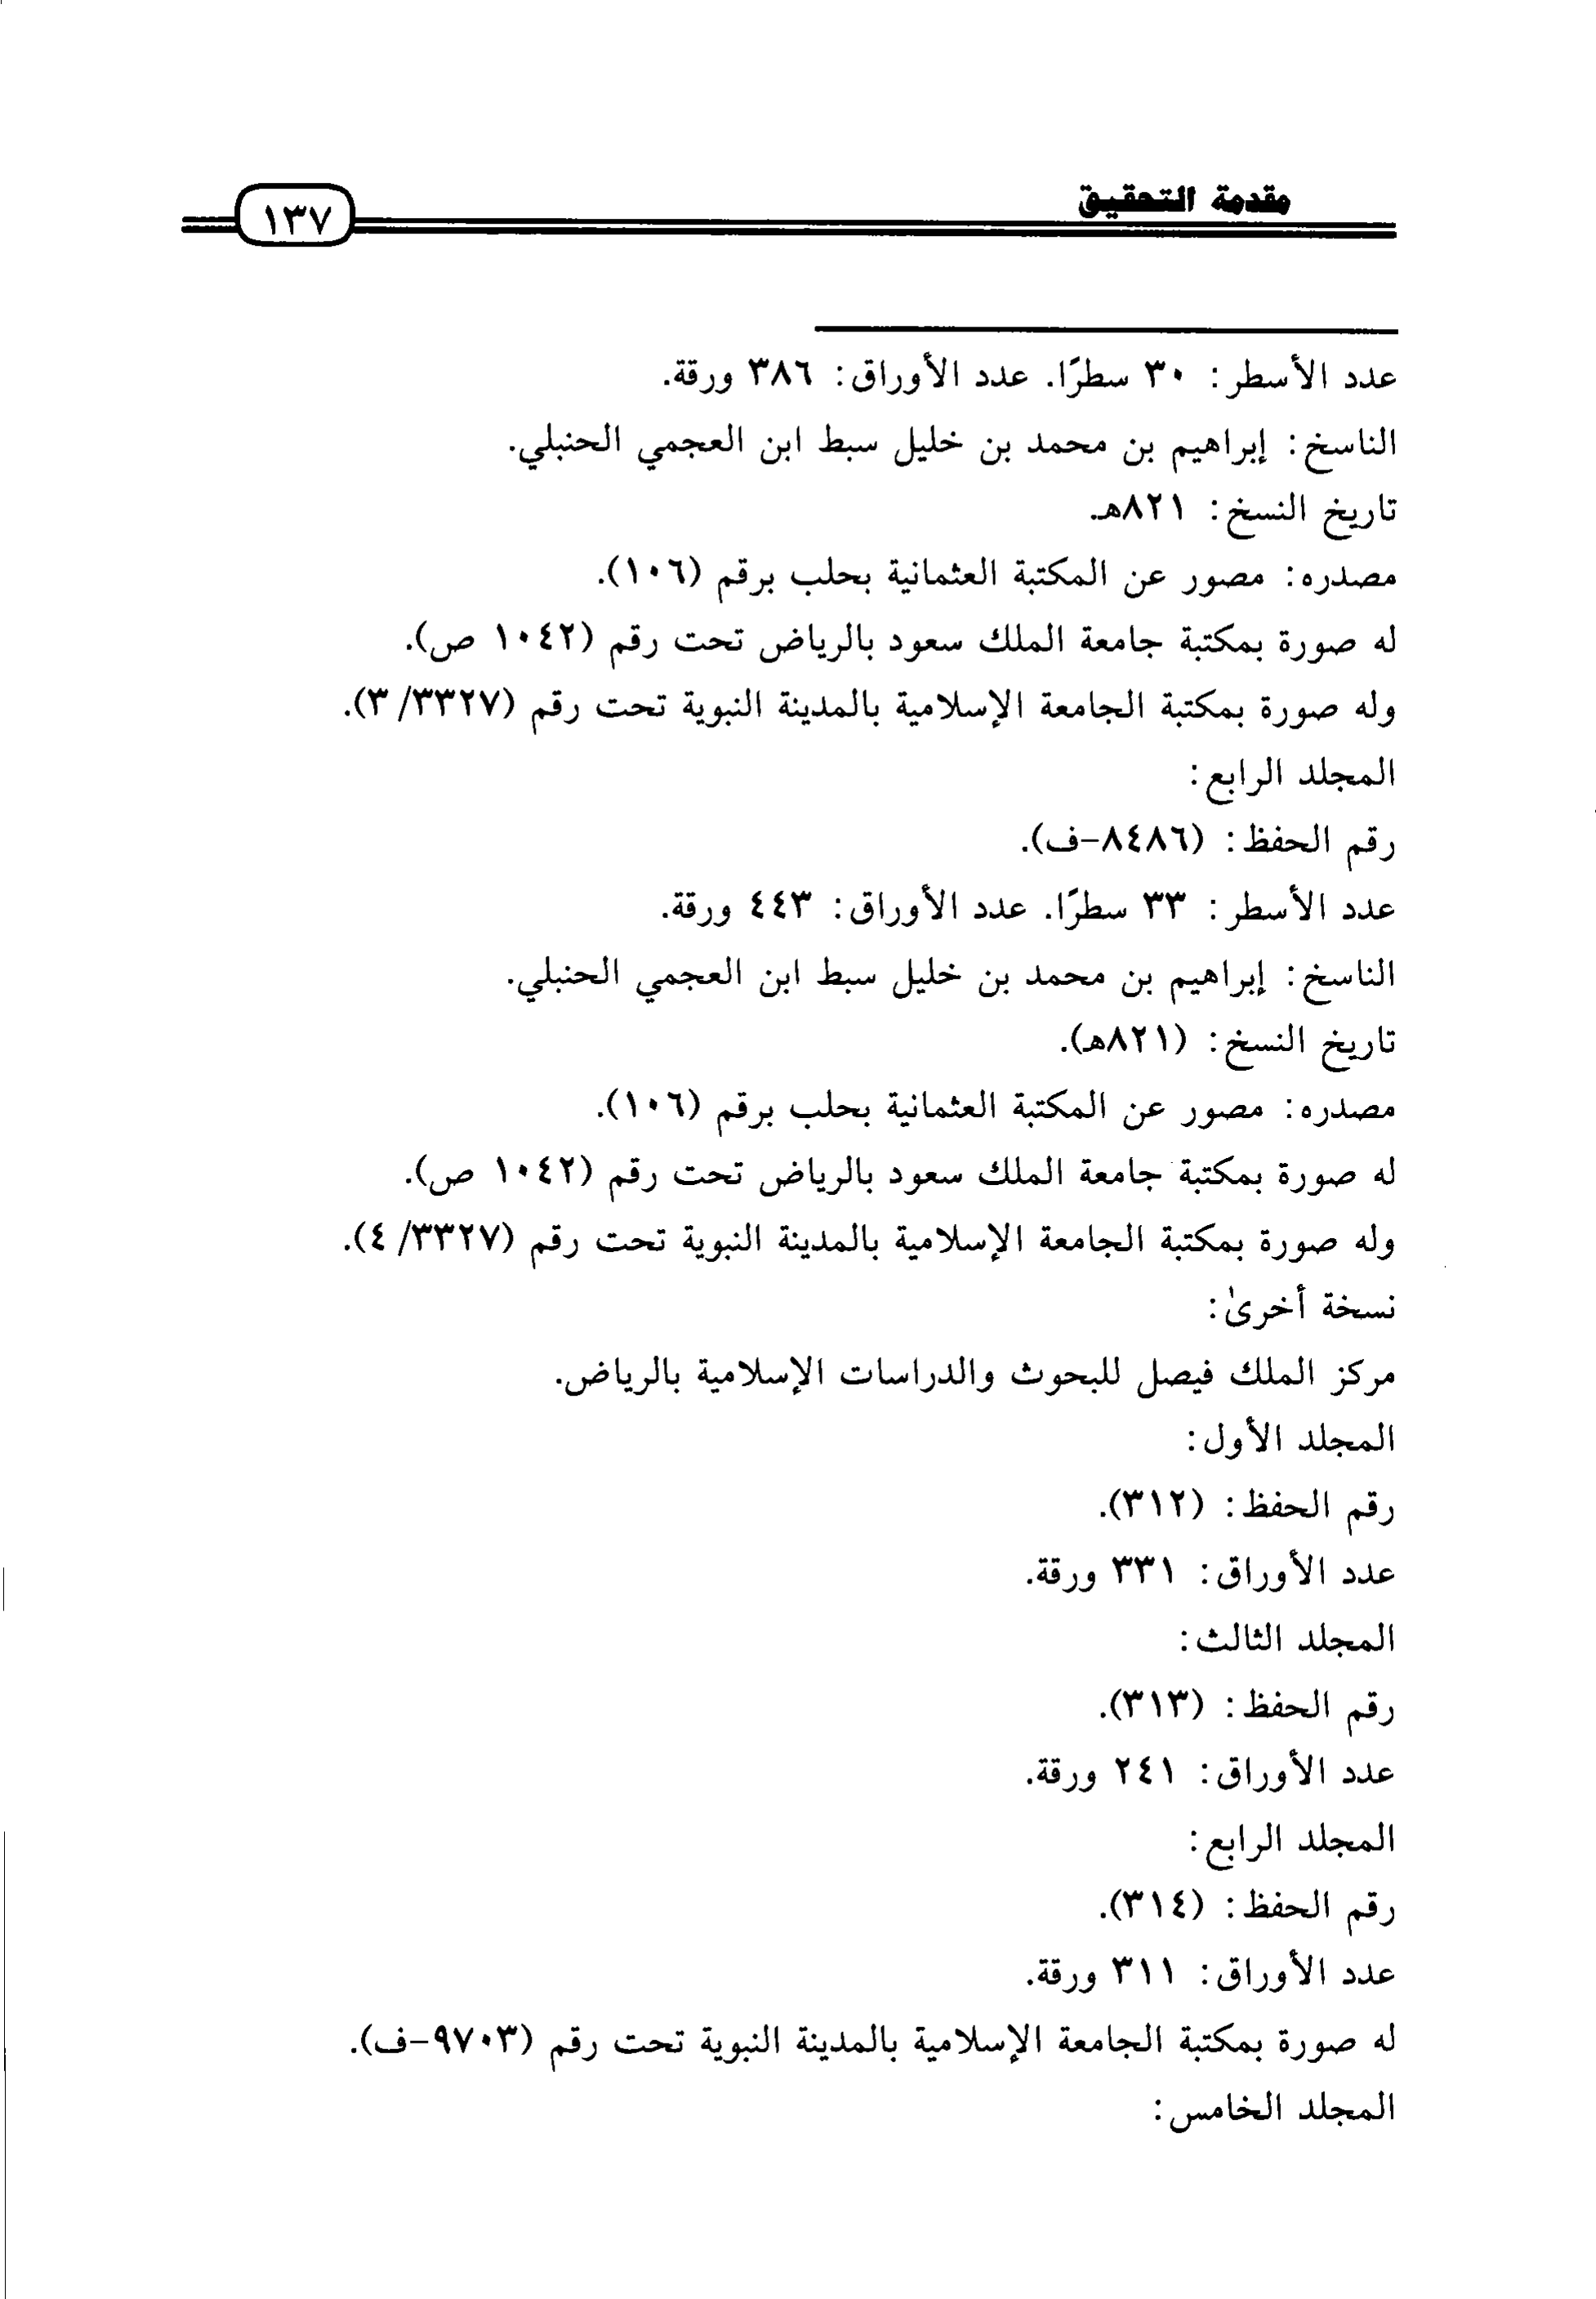 مقدمة التحقيق
١٣٧
عدد الأسطر: ٣٠ سطرًا. عدد الأوراق: ٣٨٦ ورقة.
الناسخ: إبراهيم بن محمد بن خليل سبط ابن العجمي الحنبلي.
تاريخ النسخ: ٨٢١هـ.
مصدره: مصور عن المكتبة العثمانية بحلب برقم (١٠٦).
له صورة بمكتبة جامعة الملك سعود بالرياض تحت رقم (١٠٤٢ ص).
وله صورة بمكتبة الجامعة الإسلامية بالمدينة النبوية تحت رقم (٣٣٢٧/ ٣).
المجلد الرابع:
رقم الحفظ: (٨٤٨٦-ف).
عدد الأسطر: ٣٣ سطرًا. عدد الأوراق: ٤٤٣ ورقة.
الناسخ: إبراهيم بن محمد بن خليل سبط ابن العجمي الحنبلي.
تاريخ النسخ: (٨٢١هـ).
مصدره: مصور عن المكتبة العثمانية بحلب برقم (١٠٦).
له صورة بمكتبة جامعة الملك سعود بالرياض تحت رقم (١٠٤٢ ص).
وله صورة بمكتبة الجامعة الإسلامية بالمدينة النبوية تحت رقم (٣٣٢٧/ ٤).
نسخة أخرىٰ:
مركز الملك فيصل للبحوث والدراسات الإسلامية بالرياض.
المجلد الأول:
رقم الحفظ: (٣١٢).
عدد الأوراق: ٣٣١ ورقة.
المجلد الثالث:
رقم الحفظ: (٣١٣).
عدد الأوراق: ٢٤١ ورقة.
المجلد الرابع:
رقم الحفظ: (٣١٤).
عدد الأوراق: ٣١١ ورقة.
له صورة بمكتبة الجامعة الإسلامية بالمدينة النبوية تحت رقم (٩٧٠٣-ف).
المجلد الخامس: